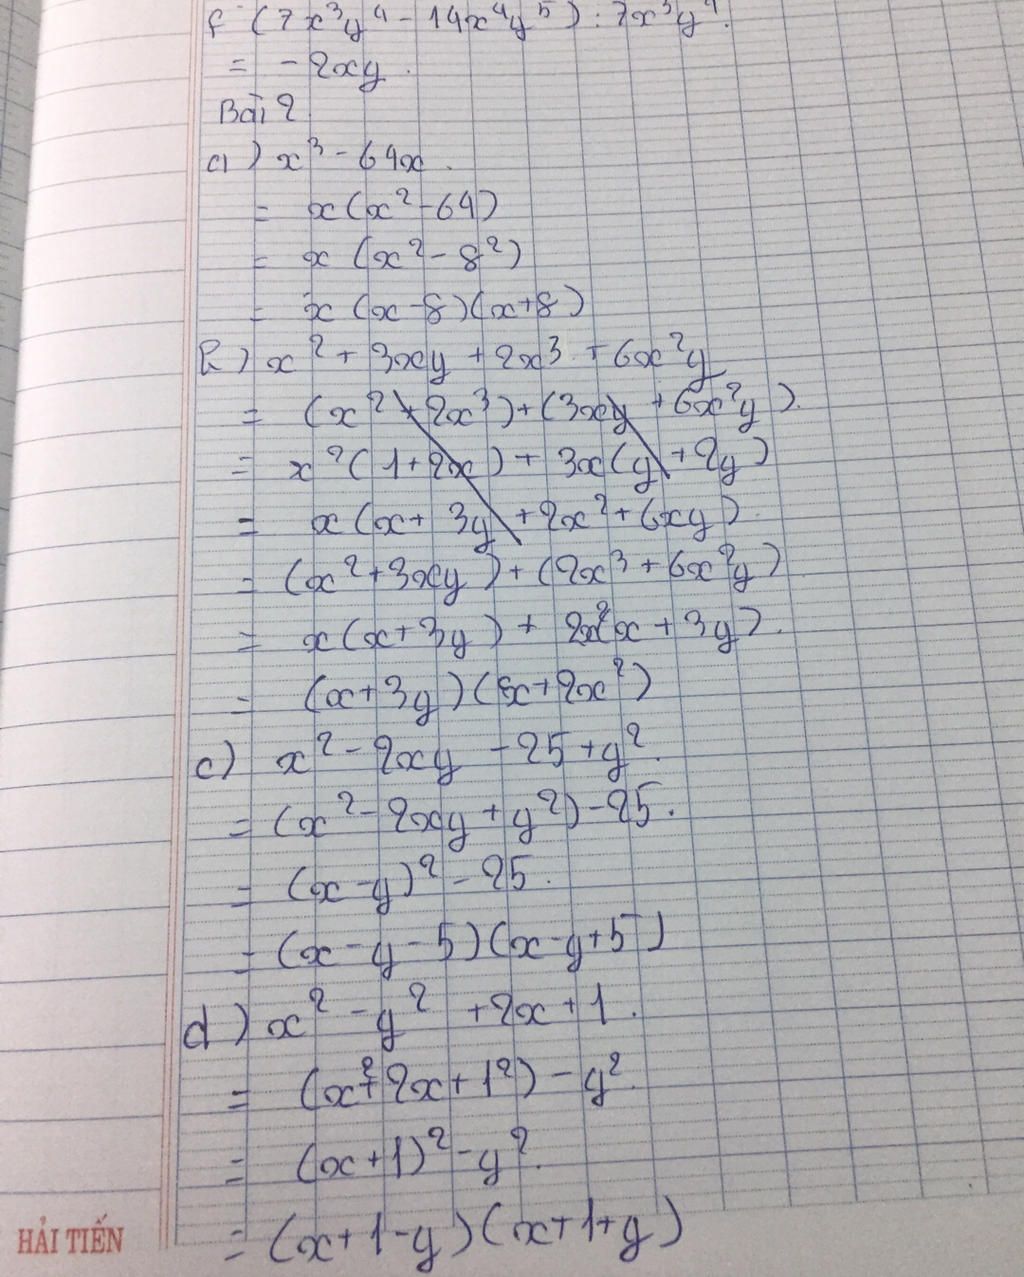 f (7x³y⁴ - 14x⁴y⁵) : 7x³y⁴.
= - 2xy.
Bài 2
a) x³ - 64x.
= x(x² - 64)
= x (x² - 8²)
= x (x - 8)(x + 8)
b) x² + 3xy + 2x³ + 6x²y
= (x² + 2x³) + (3xy + 6x²y).
= x²(1 + 2x) + 3x(y + 2y)
= x(x + 3y + 2x² + 6xy).
= (x² + 3xy) + (2x³ + 6x²y)
= x(x + 3y) + 2x²(x + 3y).
= (x + 3y)(x + 2x²)
c) x² - 2xy - 25 + y².
= (x² - 2xy + y²) - 25.
= (x - y)² - 25.
= (x - y - 5)(x - y + 5)
d) x² - y² + 2x + 1.
= (x² + 2x + 1²) - y².
= (x + 1)² - y².
= (x + 1 - y)(x + 1 + y)
HẢI TIẾN